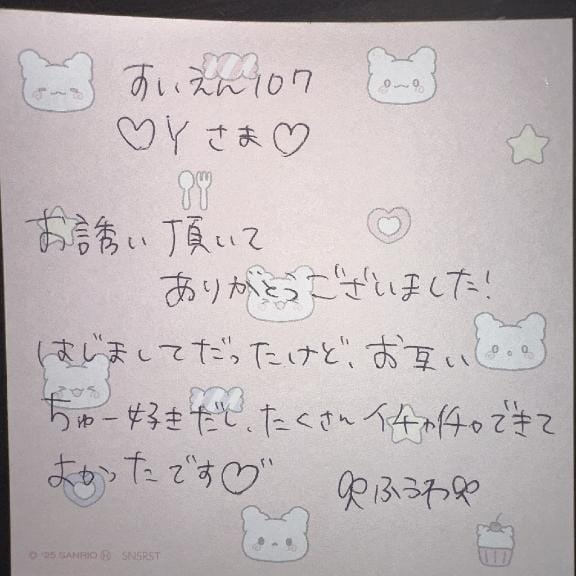 すいえん107
♡Yさま♡
お誘い頂いて
ありがとうございました!
はじましてだったけど、お互い
ちゅー好きだし、たくさんイチャイチャできて
よかったです♡
ふうわ
© '25 SANRIO Ⓗ SNSRST